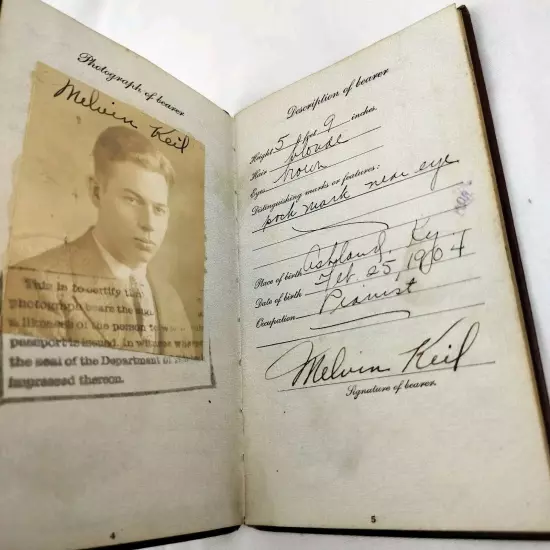 Photograph of bearer
Melvin Keil
This is to certify that
photograph bears the
a likeness of the person to
passport is issued. In witness where
the seal of the Department of
impressed thereon.
4
Description of bearer
Height 5 feet 9 inches.
Hair blonde
Eyes brown
Distinguishing marks or features:
pock mark near eye
Place of birth Ashland, Ky.
Date of birth Feb 25, 1904
Occupation Pianist
Melvin Keil
Signature of bearer.
5